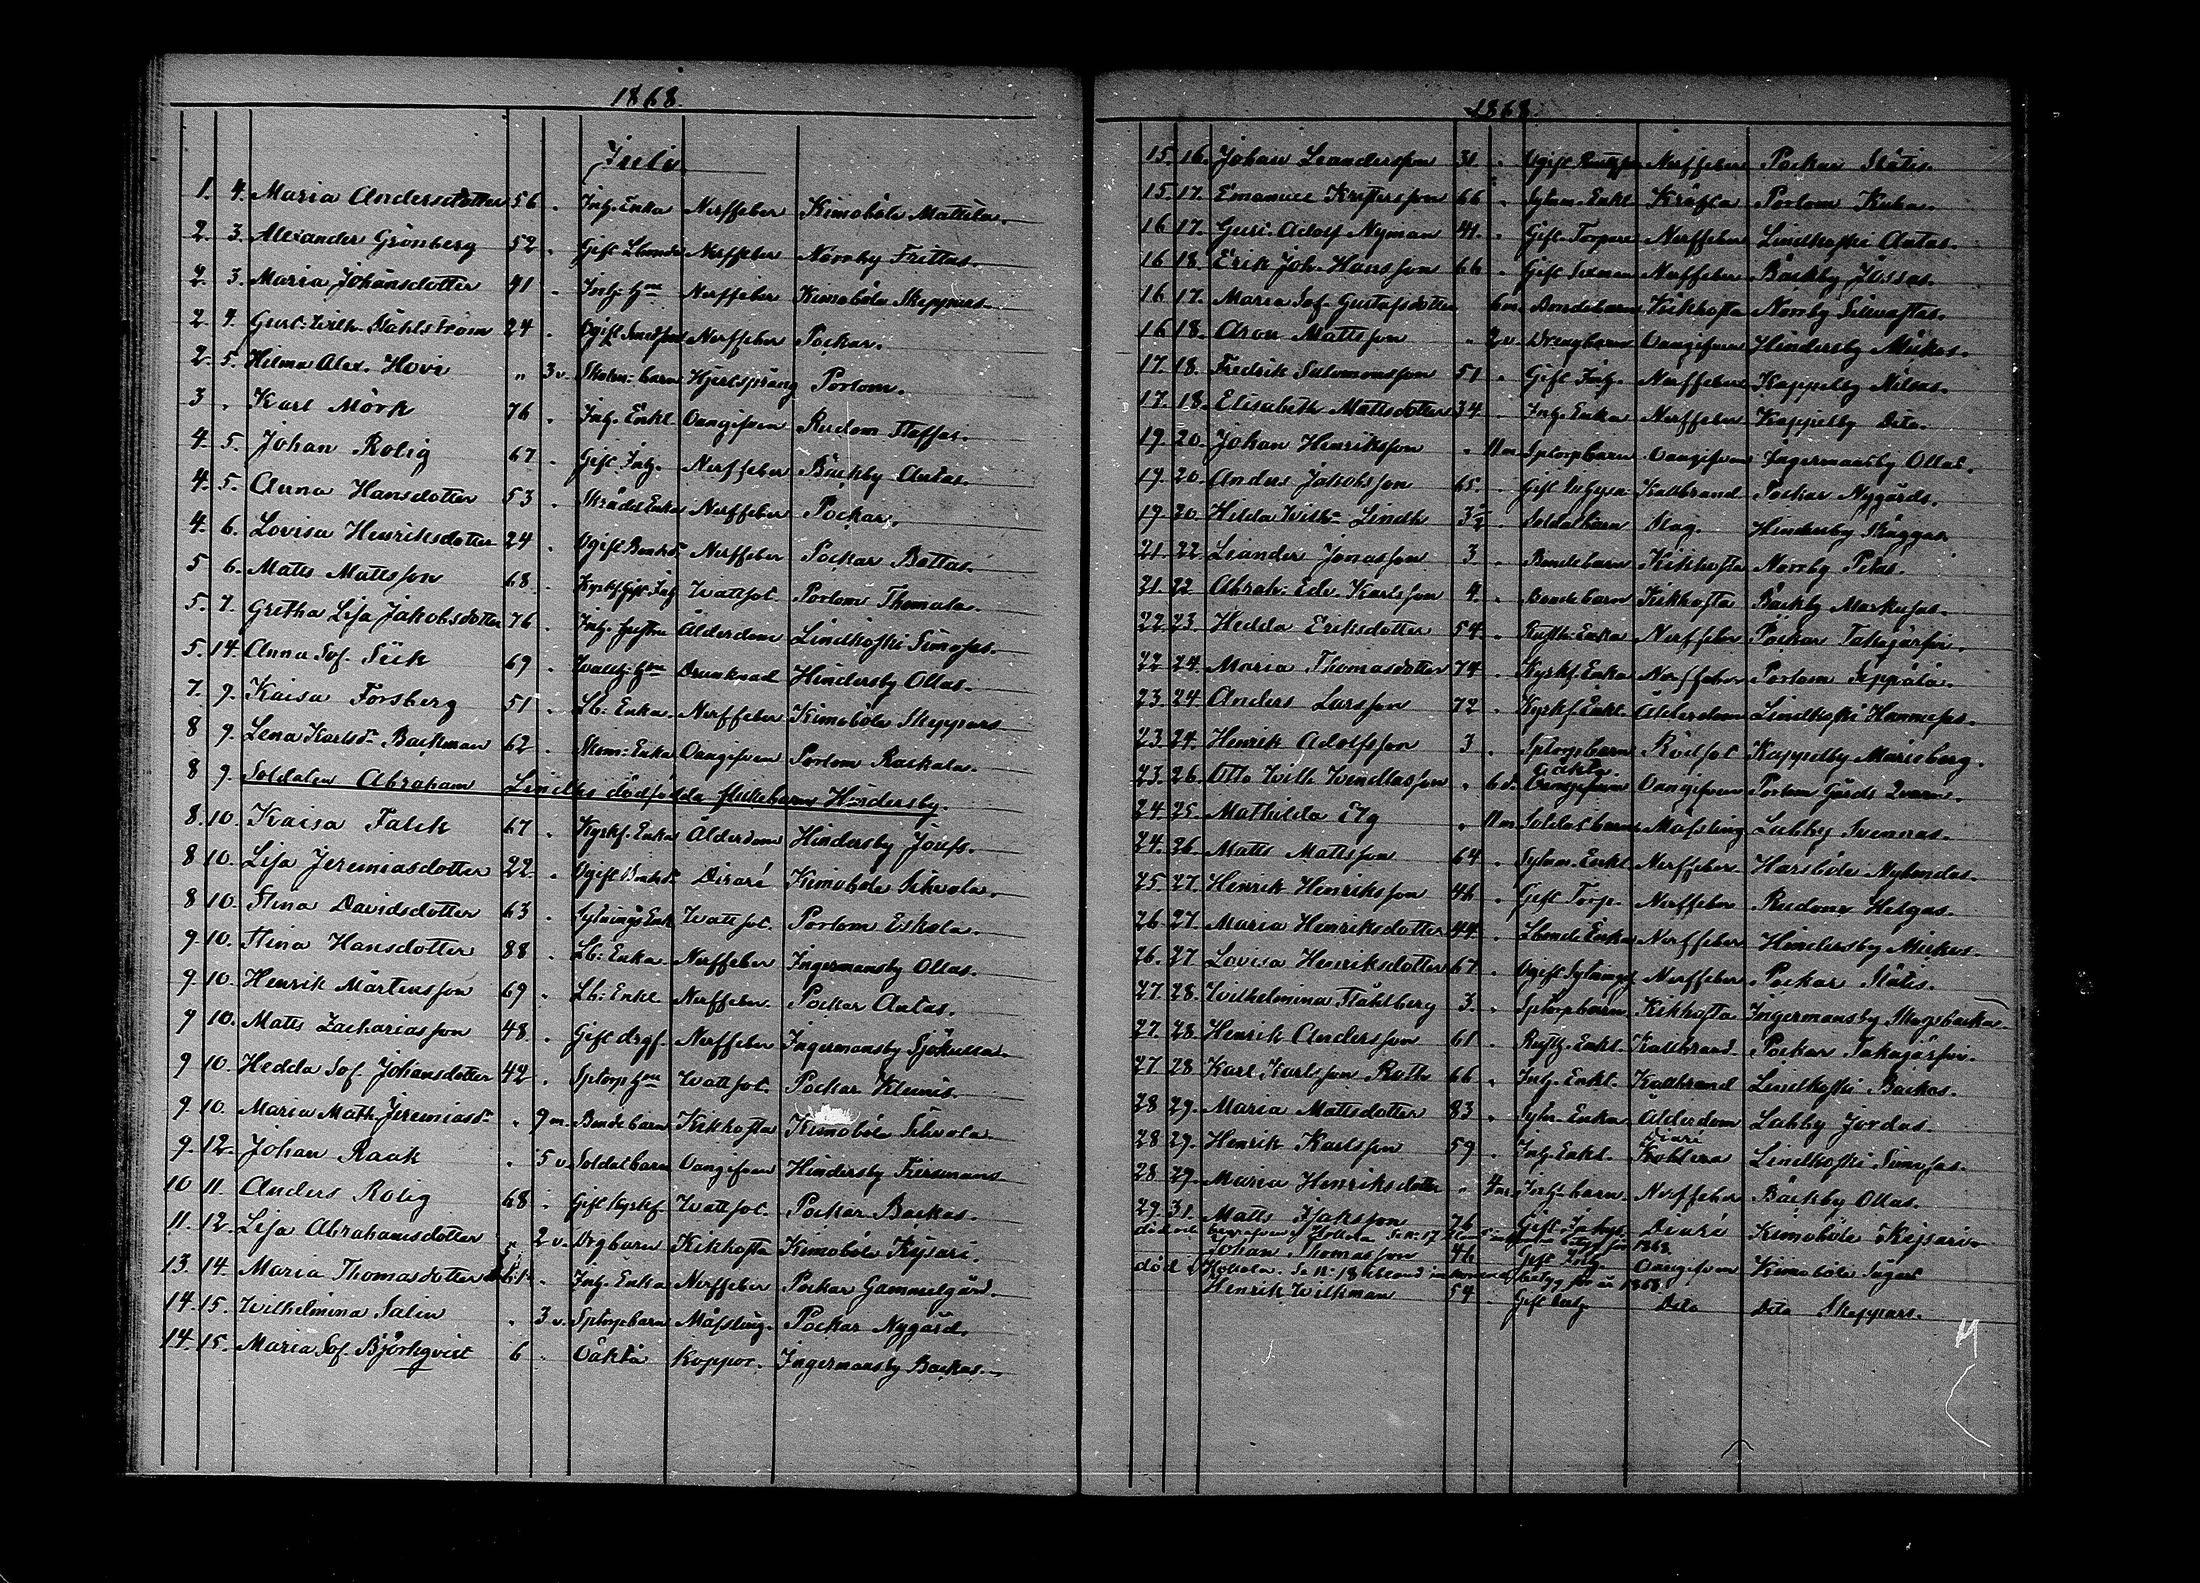 1868.
Juli
1. 4. Maria Andersdotter 56 . Inh. Enka Nerffeber Kimoböle Mattila.
2. 3. Alexander Grönberg 52 . Gift Lbonde Nerffeber Norrby Frittas.
2. 3. Maria Johansdotter 41 . Inh. hu Nerffeber Kimoböle Skeppars.
2. 4. Gust. Wilh. Ståhlström 24 . Ogift Nerffeber Pockar.
2. 5. Hilma Alex. Hovi „ 3 v. barn Hjertsprång Porlom.
3 „ Karl Mörk 76 . Inh. Enkl. Oangifven Rudom Staffas.
4. 5. Johan Rolig 67 . Gift Inh. Nerffeber Bäckby Antas.
4. 5. Anna Hansdotter 53 . Skrädd. Enka Nerffeber Pockar.
4. 6. Lovisa Henriksdotter 24 . Ogift Bonded. Nerffeber Pockar Bottas.
5 6. Matts Mattsson 68 . Kyrkf. Gift Inh Wattsot. Porlom Thomala.
5. 7. Gretha Lisa Jakobsdotter 76 . Inh. hustru Ålderdom Lindkoski Simosas.
5. 14. Anna Sof. Siik 69 . hu Drunknad Hindersby Ollas.
7. 9. Kaisa Forsberg 51 . Lb: Enka Nerffeber Kimoböle Skeppars
8 9. Lena Karlsd. Backman 62 . Enka Oangifven Porlom Rackala.
8 9. Soldaten Abraham Lindhs dödfödde flickebarn Hindersby.
8. 10. Kaisa Falck 67 . Kyrkf. Enka Ålderdom Hindersby Josefs.
8 10. Lisa Jeremiasdotter 22 . Ogift Bonded. Diaré Kimoböle Sihvola.
8 10. Stina Davidsdotter 63 . Sytnings Enk Wattsot. Porlom Eskola.
9 10. Stina Hansdotter 88 . Lb: Enka Nerffeber Ingermansby Ollas.
9. 10. Henrik Mårtensson 69 . Lb: Enkl. Nerffeber Pockar Antas.
9 10. Matts Zachariasson 48 . Gift drgf. Nerffeber Ingermansby Sjökulla.
9 10. Hedda Sof. Johansdotter 42 . Sptorp hu Wattsot. Pockar Klemis.
9. 10. Maria Math. Jeremiasd. „ 9 m. Bondebarn Kikhosta Kimoböle Sihvola
9. 12. Johan Raak „ 5 v. Soldatbarn Oangifven Hindersby
10 11. Anders Rolig 68 . Gift Kyrkf Wattsot. Pockar Backas.
11. 12. Lisa Abrahamsdotter „ 2 v. Drgbarn Kikhosta Kimoböle Kejsari.
13. 14. Maria Thomasdotter . Inh. Enka Nerffeber Pockar Gammelgård.
14. 15. Wilhelmina Salin „ 3 v. Sptorpbarn Mässling. Pockar Nygård.
14. 15. Maria Sof. Björkqvist 6 . Oäkta Koppor. Ingermansby Backas.
1868.
15. 16. Johan Leandersson 31 . Ogift Nerffeber Pockar Stätis.
15. 17. Emanuel Kristersson 66 . Sytn. Enkl Kräfta Porlom Kuha.
16 17. Gust. Adolf Nyman 41 . Gift Torpare Nerffeber Lindkoski Antas.
16 18. Erik Joh. Hansson 66 . Gift Nerffeber Bäckby Jossas.
16 17. Maria Sof. Gustafsdotter 6 m. Bondebarn Kikhosta Norrby Silvastas.
16 18. Aron Mattsson „ 2 v. Drengbarn Oangifven Hindersby Mickos.
17. 18. Fredrik Salomonsson 51 . Gift Inh. Nerffeber Kappelby Nilas.
17. 18. Elisabeth Mattsdotter 34 . Inh. Enka Nerffeber Kappelby Dito.
19. 20. Johan Henriksson „ 11 m Sptorpbarn Oangifven Ingermansby Ollas.
19. 20. Anders Jakobsson 65 . Gift Inhyse Kallbrand Pockar Nygårds.
19 20. Hilda Wilh. Lindh 3½ . Soldatbarn Slag. Hindersby Skäggas
21. 22. Leander Jonasson 3 . Bondebarn Kikhosta Norrby Petas.
21. 22 Abrah. Edv. Karlsson 4 . Bondebarn Kikhosta Bäckby Markusas.
22 23. Hedda Eriksdotter 54 . Rusth. Enka Nerffeber Pockar Takagärsin.
22 24. Maria Thomasdotter 74 . Kyrkf. Enka Nerffeber Porlom Seppälä.
23. 24. Anders Larsson 72 . Kyrkf. Enkl. Ålderdom Lindkoski Hannusas.
23. 24. Henrik Adolfsson 3 . Sptorpbarn Rödsot Kappelby Marieberg.
23. 26. Otto Wilh Wendlasson „ 6 d. Oäkta Oangifven Porlom Gårds Qvarn.
24. 25. Mathilda Elg „ 11 m. Soldatbarn Mässling Labby Svennas.
24. 26 Matts Mattsson 64 . Sytn. Enkl. Nerffeber Harsböle Nybondas.
25 27. Henrik Henriksson 46 . Gift Torp. Nerffeber Rudom Helgas.
26. 27. Maria Henriksdotter 44 . Lbonde Enka Nerffeber Hindersby Mickos.
26. 27 Lovisa Henriksdotter 67 . Ogift Nerffeber Pockar Stätis.
27. 28. Wilhelmina Ståhlberg 3 . Sptorpbarn Kikhosta Ingermansby Skogsbacka.
27. 28. Henrik Andersson 61 . Rusth. Enkl. Kallbrand Pockar Takagärsin.
27 28 Karl Karlsson Ruth 66 . Inh. Enkl. Kallbrand Lindkoski Backas.
28 29. Maria Mattsdotter 83 . Sytn. Enka Ålderdom Labby Jordas.
28 29. Henrik Karlsson 59 . Inh. Enkl. Diaré Lindkoski Simosas.
28 29. Maria Henriksdotter „ 4 m. Inh. barn Nerffeber Bäckby Ollas.
29. 31. Matts Isaksson 76 . Gift Inhys Diaré Kimoböle Kejsari.
död i Hollola Se N: 17 1868.
Johan Thomasson 46 . Gift Inh. Oangifven Kimoböle
död i Hollola. Se N: 18 ibland inkomna betyg för år 1868.
Henrik Wilkman 54 . Gift Dito Dito Skeppars.